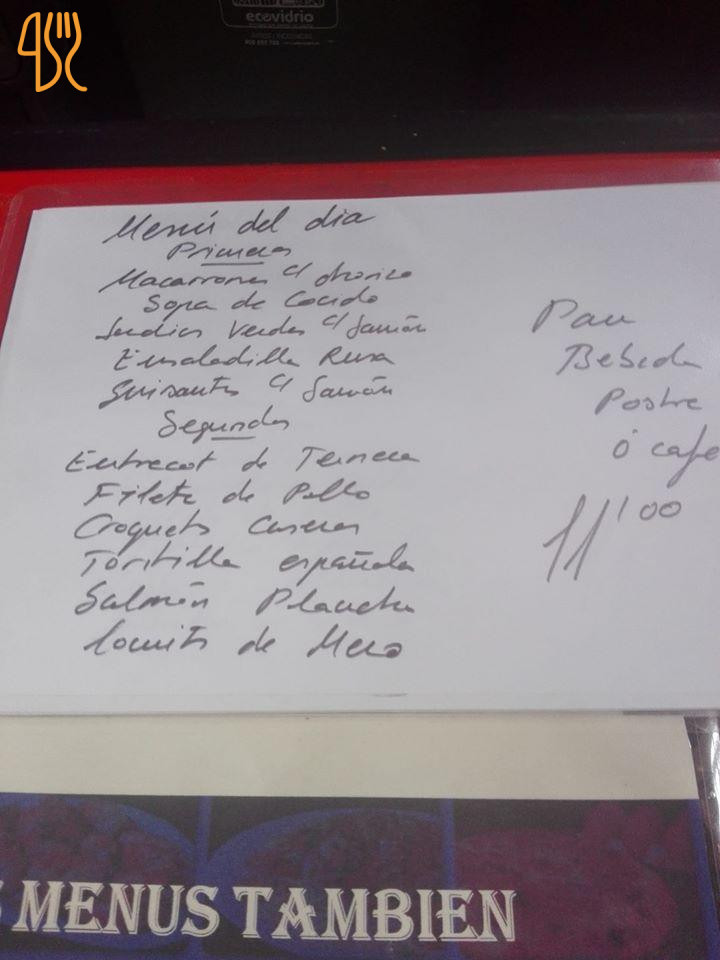 ecovidrio
Menú del dia
Primeros
Macarrones c/ chorizo
Sopa de Cocido
Judias Verdes c/ Jamón
Ensaladilla Rusa
Guisantes c/ Jamón
Segundos
Entrecot de Ternera
Filete de Pollo
Croquets Caseras
Tortilla española
Salmón Plancha
lomits de Mero
Pan
Bebida
Postre
ó cafe
11'00
MENUS TAMBIEN